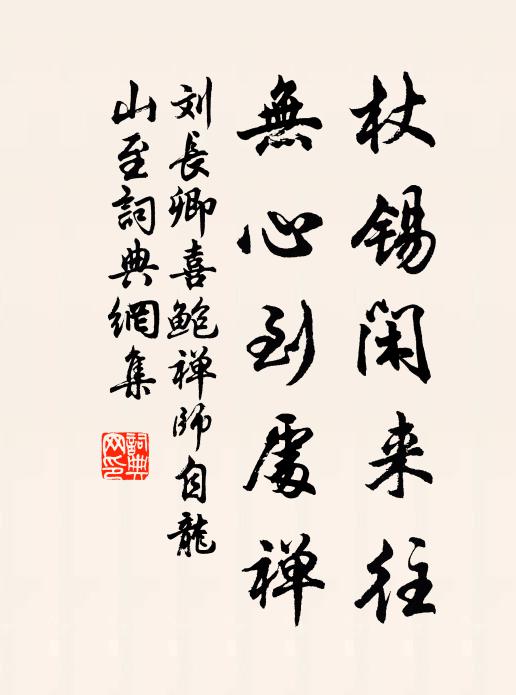 杖锡闲来往
無心到處禅
刘長卿喜鲍禅師自龍
山至詞典網集
詞典網印